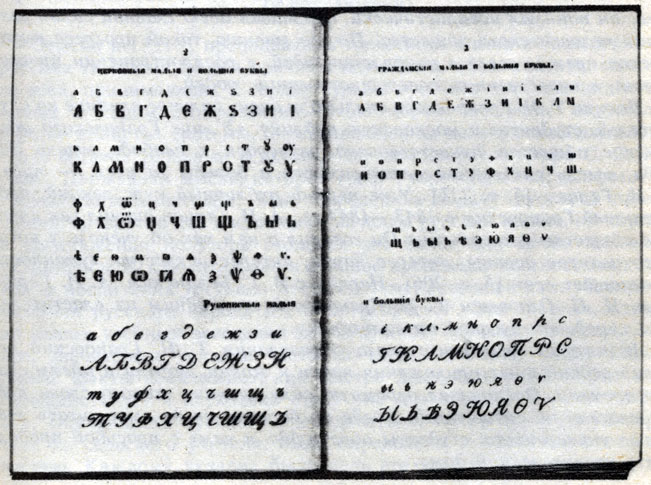 2
ЦЕРКОВНЫЯ МАЛЫЯ И БОЛЬШІЯ БУКВЫ.
а б в г д е ж ѕ з и і
А Б В Г Д Є Ж Ѕ З И І
к л м н о п р с т у оу
К Л М Н О П Р С Т Ꙋ У
ф х ѿ ц ч ш щ ъ ы ь
Ф Х Ѿ Ц Ч Ш Щ Ъ Ы Ь
ѣ є ю ѡ ꙗ ѧ ѯ ѱ ѳ ѵ
Ѣ Є Ю Ѡ Ꙗ Ѧ Ѯ Ѱ Ѳ Ѵ
Рукописныя малыя
а б в г д е ж з и
А Б В Г Д Е Ж З И
т у ф х ц ч ш щ ъ
Т У Ф Х Ц Ч Ш Щ Ъ
2
ГРАЖДАНСКІЯ МАЛЫЯ И БОЛЬШІЯ БУКВЫ.
а б в г д е ж з и і к л м
А Б В Г Д Е Ж З И І К Л М
н о п р с т у ф х ц ч ш
Н О П Р С Т У Ф Х Ц Ч Ш
щ ъ ы ь ѣ э ю я ѳ ѵ
Щ Ъ Ы Ь Ѣ Э Ю Я Ѳ Ѵ
и большія буквы.
і к л м н о п р с
І К Л М Н О П Р С
ы ь ѣ э ю я ѳ ѵ
Ы Ь Ѣ Э Ю Я Ѳ Ѵ